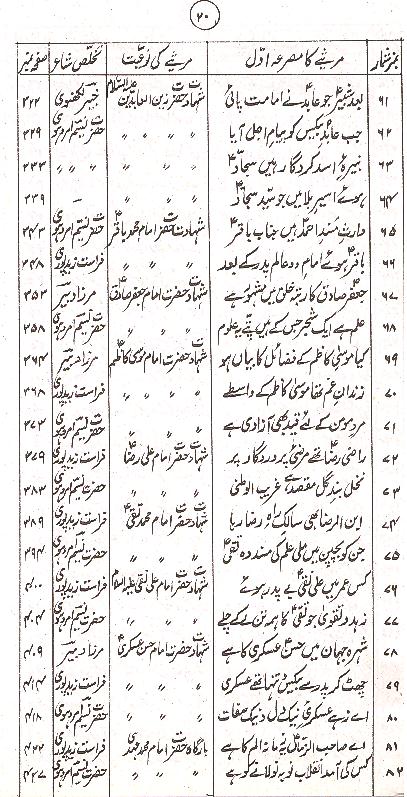 ۲۰
نمبر شمار مرثیے کا مصرعہ اوّل مرثیے کی نوعیت تخلص شاعر صفحہ نمبر
۶۱ بعد شبیرؑ جو عابدؑ نے امامت پائی شہادت حضرت زین العابدین علیہ السلام خبیر لکھنوی ۲۲۲
۶۲ جب عابدِ بیکس کو پیامِ اجل آیا 〃 〃 〃 حضرت نسیم امروہوی ۲۲۹
۶۳ نبیرۂ اسد کردگار ہیں سجادؑ 〃 〃 〃 〃 〃 〃 ۲۳۳
۶۴ ہوئے اسیر بلا میں جو سید سجادؑ 〃 〃 〃 – ۲۳۹
۶۵ وارثِ مسند احمدؐ ہیں جناب باقرؑ شہادت حضرت امام محمد باقرؑ حضرت نسیم امروہوی ۲۴۳
۶۶ باقرؑ ہوئے امام دو عالم پدر کے بعد 〃 〃 〃 فراست زیدپوری ۲۴۸
۶۷ جعفر صادقؑ کا رتبہ خلق میں مشہور ہے شہادت حضرت امام جعفر صادقؑ مرزا دبیر ۳۵۳
۶۸ علم ہے ایک شجر جس کے ہیں پتے یہ علوم 〃 〃 〃 حضرت نسیم امروہوی ۳۵۸
۶۹ کیا موسیٰ کاظمؑ کے فضائل کا بیاں ہو شہادت حضرت امام موسیٰ کاظمؑ مرزا دبیر ۳۶۴
۷۰ زندانِ غم تھا موسیٰ کاظمؑ کے واسطے 〃 〃 〃 فراست زیدپوری ۳۶۸
۷۱ مرد مومن کے لئے قید بھی آزادی ہے 〃 〃 〃 حضرت نسیم امروہوی ۳۷۳
۷۲ راضی رضاؑ تھے مرضیٔ پروردگار پر شہادت حضرت امام علی رضاؑ فراست زیدپوری ۳۷۹
۷۳ نخل بند گل مقصد ہے غریب الوطنی 〃 〃 〃 حضرت نسیم امروہوی ۳۸۳
۷۴ ابن الرضا بھی سالک راہِ رضا رہا شہادت حضرت امام محمد تقیؑ فراست زیدپوری ۳۸۹
۷۵ جن کو بچپن میں ملی علم کی مسند وہ تقیؑ 〃 〃 〃 حضرت نسیم امروہوی ۳۹۴
۷۶ کس عمر میں علی نقیؑ بے پدر ہوئے شہادت حضرت امام علی نقی علیہ السلام فراست زیدپوری ۴۰۰
۷۷ زہد و تقویٰ جو نقیؑ کا ہمہ تن لے کے چلے 〃 〃 〃 حضرت نسیم امروہوی ۴۰۴
۷۸ شہرہ جہان میں حسن عسکریؑ کا ہے شہادت حضرت امام حسن عسکریؑ مرزا دبیر ۴۰۹
۷۹ چھٹ کر پدر سے بیکس و تنہا تھے عسکری 〃 〃 〃 فراست زیدپوری ۴۱۴
۸۰ اے زہے عسکریؑ نیک دل و نیک صفات 〃 〃 〃 حضرت نسیم امروہوی ۴۱۸
۸۱ اے صاحب الزماںؑ یہ زمانہ الم کا ہے بارگاہ حضرت امام محمد مہدیؑ فراست زیدپوری ۴۲۲
۸۲ کس کی آمد انقلابِ نو بہ نو لانے کو ہے 〃 〃 〃 حضرت نسیم امروہوی ۴۲۷